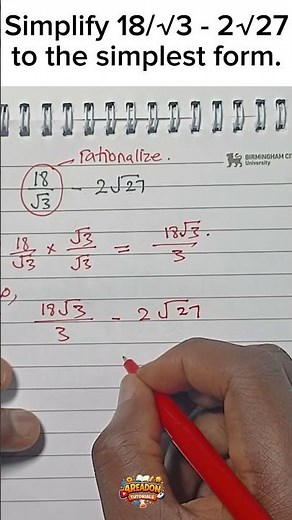 Simplify 18/√3 - 2√27
to the simplest form.
rationalize.
18/√3 - 2√27
BIRMINGHAM CI
University
18/√3 × √3/√3 = 18√3/3.
18√3/3 - 2√27
AREADON
TUTORIALS